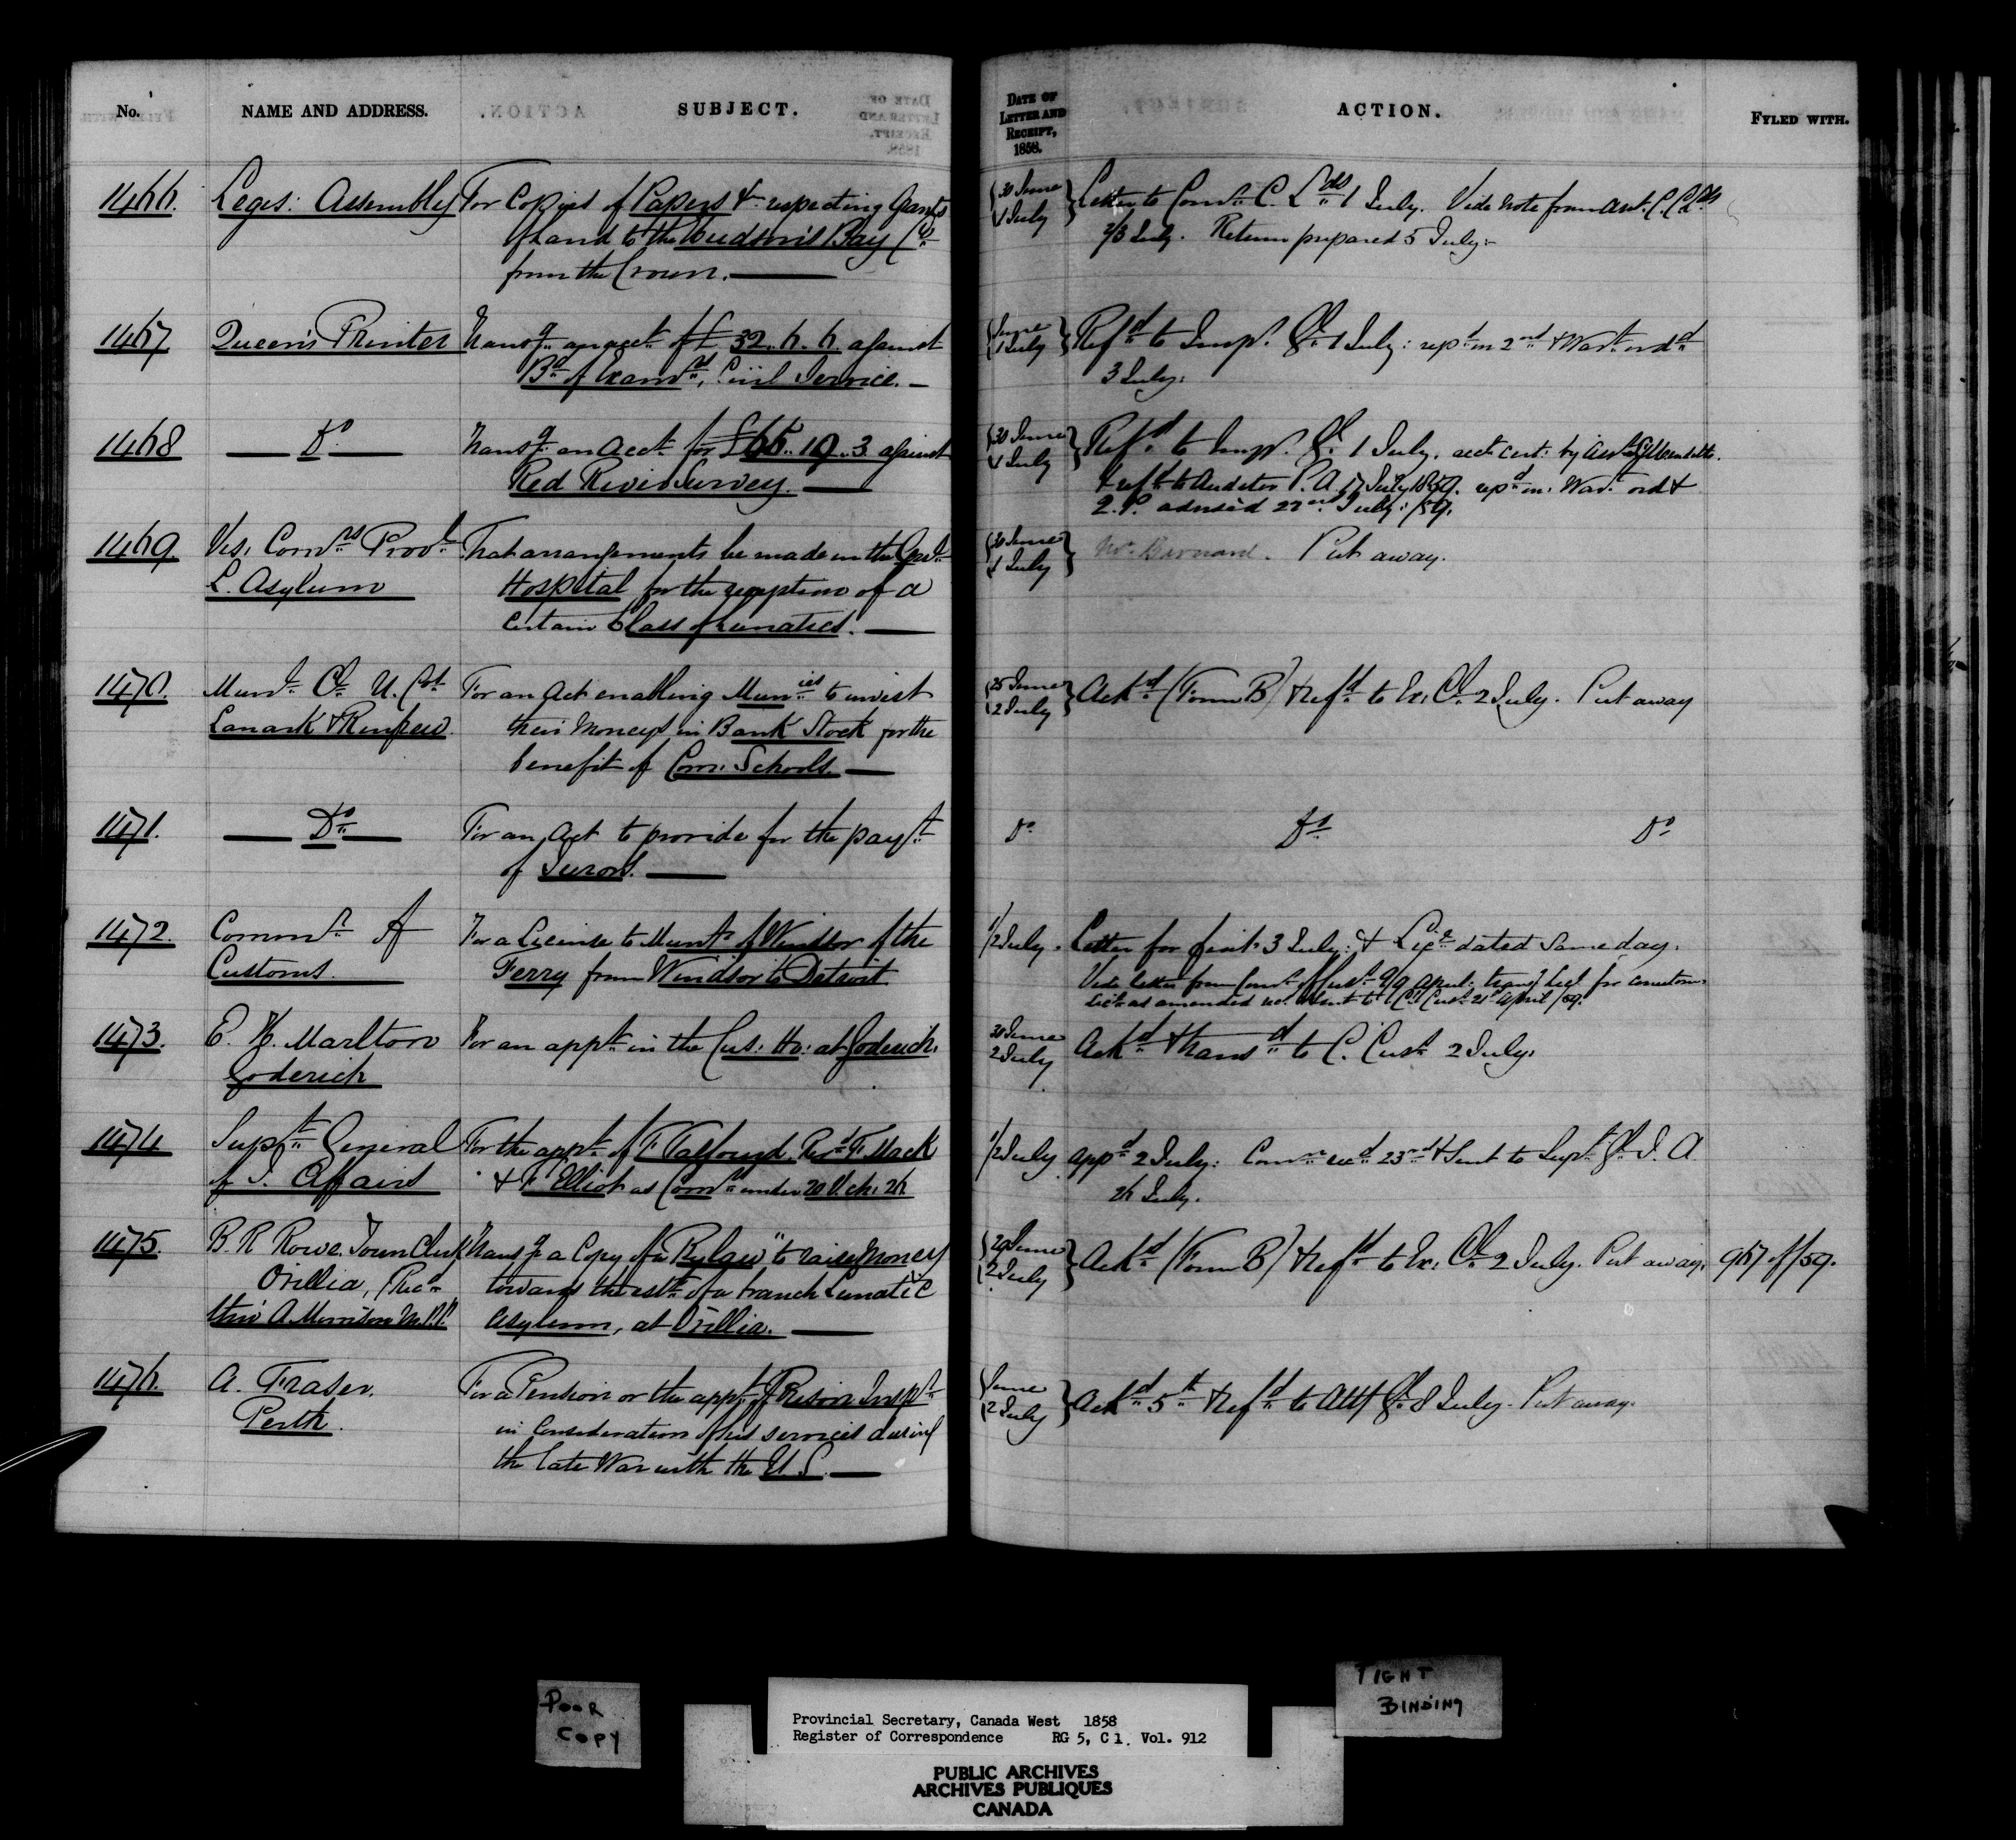 No. NAME AND ADDRESS. SUBJECT.
1466. Legis: Assembly For Copies of Papers &c respecting Grants
of Land to the Hudson's Bay Co
from the Crown.
1467 Queen's Printer Transg an acct of £32.. 6. 6. against
Bd of Examrs, Civil Service.
1468 Do Transg an acct for £66.. 19..3 against
Red River Survey.
1469 Vis: Comrs Provl That arrangements be made in the Genl
L. Asylum Hospital for the reception of a
certain Class of Lunatics.
1470. Munl Cl U. Cos For an Act enabling Munies to invest
Lanark & Renfrew. their moneys in Bank Stock for the
benefit of Com: Schools.
1471. Do For an Act to provide for the payt
of Jurors.
1472. Commr of For a License to Munty of Windsor of the
Customs. Ferry from Windsor to Detroit
1473. E. H. Marlton For an appt in the Cus: Ho: at Goderich.
Goderich
1474 Supt General For the appt of F. Talfourd, Revd F. Mack
of I. Affairs & F. Elliot as Comrs under 20 V. ch: 26
1475. B. R Rowe. Town Clerk Transg a Copy of a Bylaw "to raise money
Orillia, (Rec
thro' A. Morrison M.P.P. towards the estt of a branch Lunatic
Asylum, at Orillia.
1476. A. Fraser. For a Pension or the appt of Prison Inspr
Perth. in Consideration of his services during
the late War with the U.S.
DATE OF
LETTER AND
RECEIPT,
1858.
ACTION. FYLED WITH.
30 June
1 July Letter to Comr C. Lds 1 July. Vide note from Asst. C. C. Lds
2/3 July. Return prepared 5 July.
June
1 July Refd to Insp. Gl 1 July: repd on 2nd & Wart ordd
3 July.
30 June
1 July Refd to Insp. Gl 1 July. acct cert: by
& refd to Auditor P. A. 17 July 1859. repd on: Wart ord &
Q. P. advised 22nd July /59.
30 June
1 July Mr Bernard. Put away.
25 June
2 July Ackd (Form B) & refd to Ex: Cl 2 July. Put away
Do Do Do
1/2 July. Letter for 3 July: & Lice dated same day.
Vide letter from Comr of Cust 9/9 April
as amended 21st April /59.
30 June
2 July Ackd & transd to C. Cust 2 July.
1/2 July appd 2 July: Comn recd 23rd & sent to Supt Gl I. A
26 July.
29 June
2 July Ackd (Form B) & refd to Ex: Cl 2 July. Put away. 967 of /59.
June
2 July Ackd 5th & refd to Atty Gl 8 July. Put away.
POOR
COPY
TIGHT
BINDING
Provincial Secretary, Canada West 1858
Register of Correspondence RG 5, C 1. Vol. 912
PUBLIC ARCHIVES
ARCHIVES PUBLIQUES
CANADA